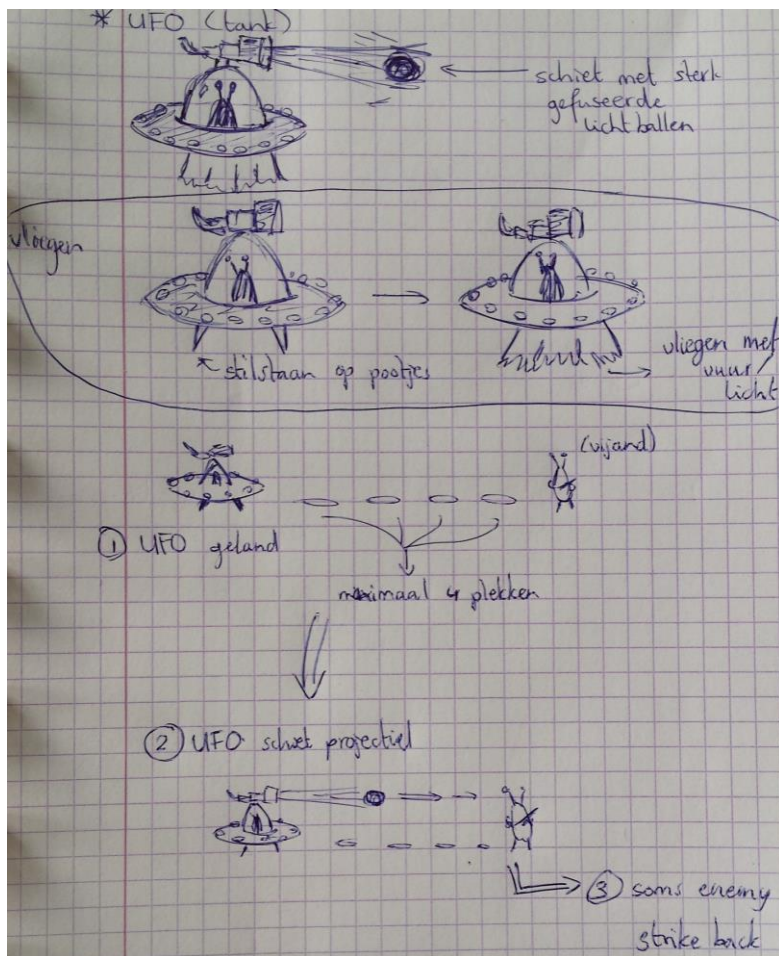 * UFO (tank)
schiet met sterk
gefuseerde
lichtballen
vliegen
stilstaan op pootjes
vliegen met
vuur/
licht
(vijand)
① UFO geland
4 plekken
② UFO schiet projectiel
③ soms enemy
strike back